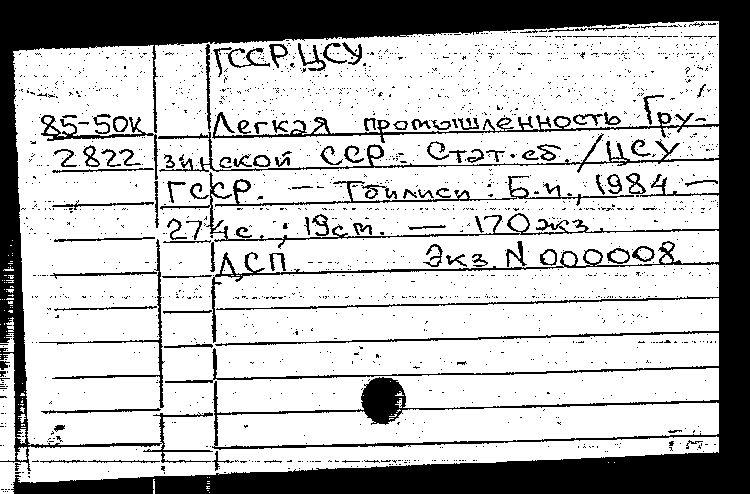 ГССР. ЦСУ.
85-50к Легкая промышленность Гру-
2822 зинской ССР: Стат. сб. / ЦСУ
ГССР. — Тбилиси: Б.и., 1984. —
274с.; 19см. — 170экз.
ДСП. Экз. N 000008.